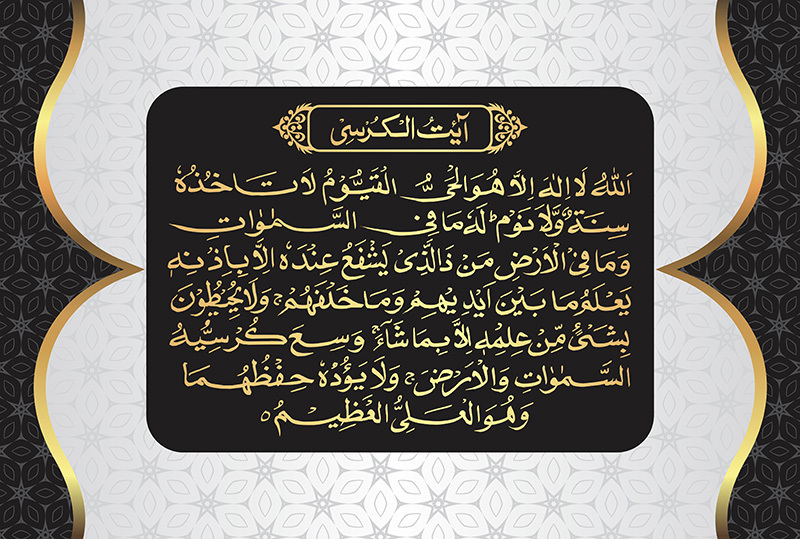 آيٰتُ الْكُرْسِيْ
اَللهُ لَا اِلٰهَ اِلَّا هُوَ الْحَىُّ الْقَيُّوْمُ لَا تَاخُذُهٗ
سِنَةٌ وَّلَا نَوْمٌ لَهٗ مَا فِى السَّمٰوٰتِ
وَمَا فِى الْاَرْضِ مَنْ ذَالَّذِىْ يَشْفَعُ عِنْدَهٗ اِلَّا بِاِذْنِهٖ
يَعْلَمُ مَا بَيْنَ اَيْدِيْهِمْ وَمَا خَلْفَهُمْ وَلَا يُحِيْطُوْنَ
بِشَىْءٍ مِّنْ عِلْمِهٖ اِلَّا بِمَا شَآءَ وَسِعَ كُرْسِيُّهُ
السَّمٰوٰتِ وَالْاَرْضَ وَلَا يَؤُدُهٗ حِفْظُهُمَا
وَهُوَ الْعَلِىُّ الْعَظِيْمُ ہ